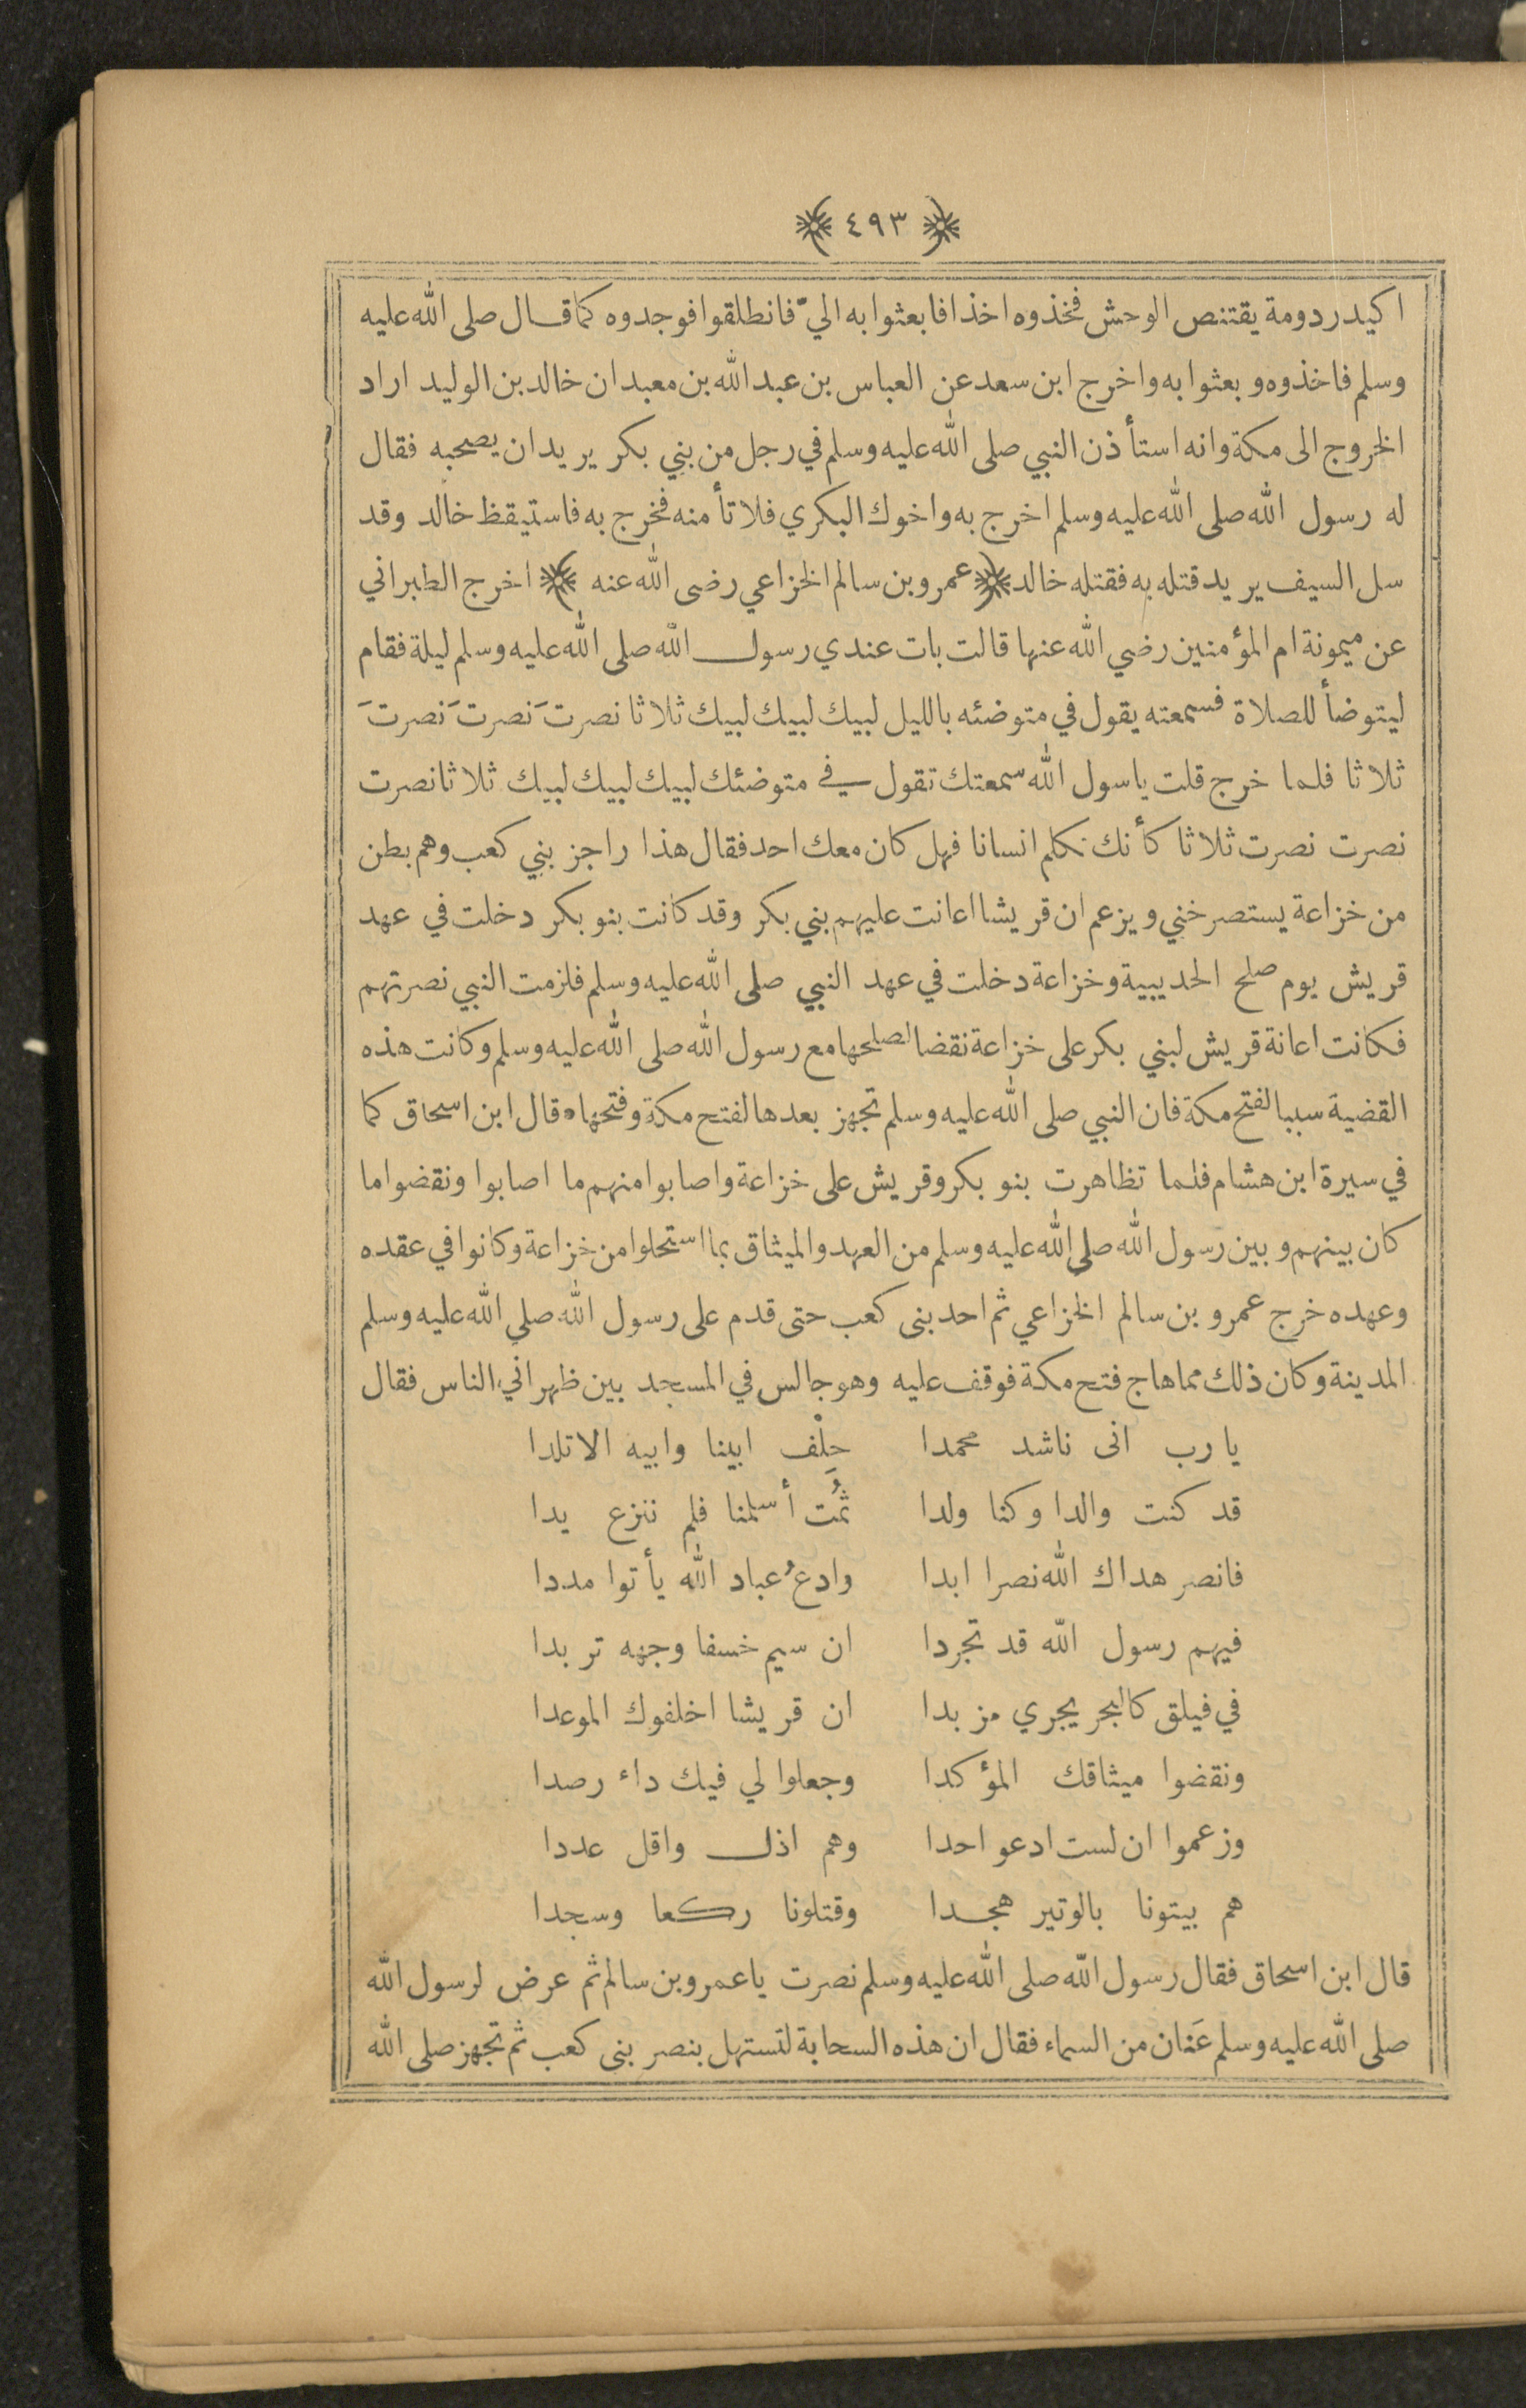 ﴿ ٤٩٣ ﴾
اكيدر دومة يقتنص الوحش فخذوه اخذا فابعثوا به اليّ فانطلقوا فوجدوه كما قال صلى الله عليه
وسلم فاخذوه وبعثوا به واخرج ابن سعد عن العباس بن عبد الله بن معبد ان خالد بن الوليد اراد
الخروج الى مكة وانه استأذن النبي صلى الله عليه وسلم في رجل من بني بكر يريد ان يصحبه فقال
له رسول الله صلى الله عليه وسلم اخرج به واخوك البكري فلا تأمنه فخرج به فاستيقظ خالد وقد
سل السيف يريد قتله به فقتله خالد ﴿ عمرو بن سالم الخزاعي رضى الله عنه ﴾ اخرج الطبراني
عن ميمونة ام المؤمنين رضي الله عنها قالت بات عندي رسول الله صلى الله عليه وسلم ليلة فقام
ليتوضأ للصلاة فسمعته يقول في متوضئه بالليل لبيك لبيك لبيك ثلاثا نصرتَ نصرتَ نصرتَ
ثلاثا فلما خرج قلت ياسول الله سمعتك تقول في متوضئك لبيك لبيك لبيك ثلاثا نصرت
نصرت نصرت ثلاثا كأنك تكلم انسانا فهل كان معك احد فقال هذا راجز بني كعب وهم بطن
من خزاعة يستصرخني ويزعم ان قريشا اعانت عليهم بني بكر وقد كانت بنو بكر دخلت في عهد
قريش يوم صلح الحديبية وخزاعة دخلت في عهد النبي صلى الله عليه وسلم فلزمت النبي نصرتهم
فكانت اعانة قريش لبني بكر على خزاعة نقضا لصلحها مع رسول الله صلى الله عليه وسلم وكانت هذه
القضية سببا لفتح مكة فان النبي صلى الله عليه وسلم تجهز بعدها لفتح مكة وفتحها ٠ قال ابن اسحاق كما
في سيرة ابن هشام فلما تظاهرت بنو بكر وقريش على خزاعة واصابوا منهم ما اصابوا ونقضوا ما
كان بينهم وبين رسول الله صلى الله عليه وسلم من العهد والميثاق بما استحلوا من خزاعة وكانوا في عقده
وعهده خرج عمرو بن سالم الخزاعي ثم احد بنى كعب حتى قدم على رسول الله صلى الله عليه وسلم
المدينة وكان ذلك مما هاج فتح مكة فوقف عليه وهو جالس في المسجد بين ظهراني الناس فقال
يا رب انى ناشد محمدا حِلْف ابينا وابيه الاتلدا
قد كنت والدا وكنا ولدا ثُمَّت أسلمنا فلم ننزع يدا
فانصر هداك الله نصرا ابدا وادعُ عباد الله يأتوا مددا
فيهم رسول الله قد تجردا ان سيم خسفا وجهه تربدا
في فيلق كالبحر يجري مزبدا ان قريشا اخلفوك الموعدا
ونقضوا ميثاقك المؤكدا وجعلوا لي فيك داء رصدا
وزعموا ان لست ادعو احدا وهم اذل واقل عددا
هم بيتونا بالوتير هجدا وقتلونا ركعا وسجدا
قال ابن اسحاق فقال رسول الله صلى الله عليه وسلم نصرت يا عمرو بن سالم ثم عرض لرسول الله
صلى الله عليه وسلم عَنان من السماء فقال ان هذه السحابة لتستهل بنصر بنى كعب ثم تجهز صلى الله